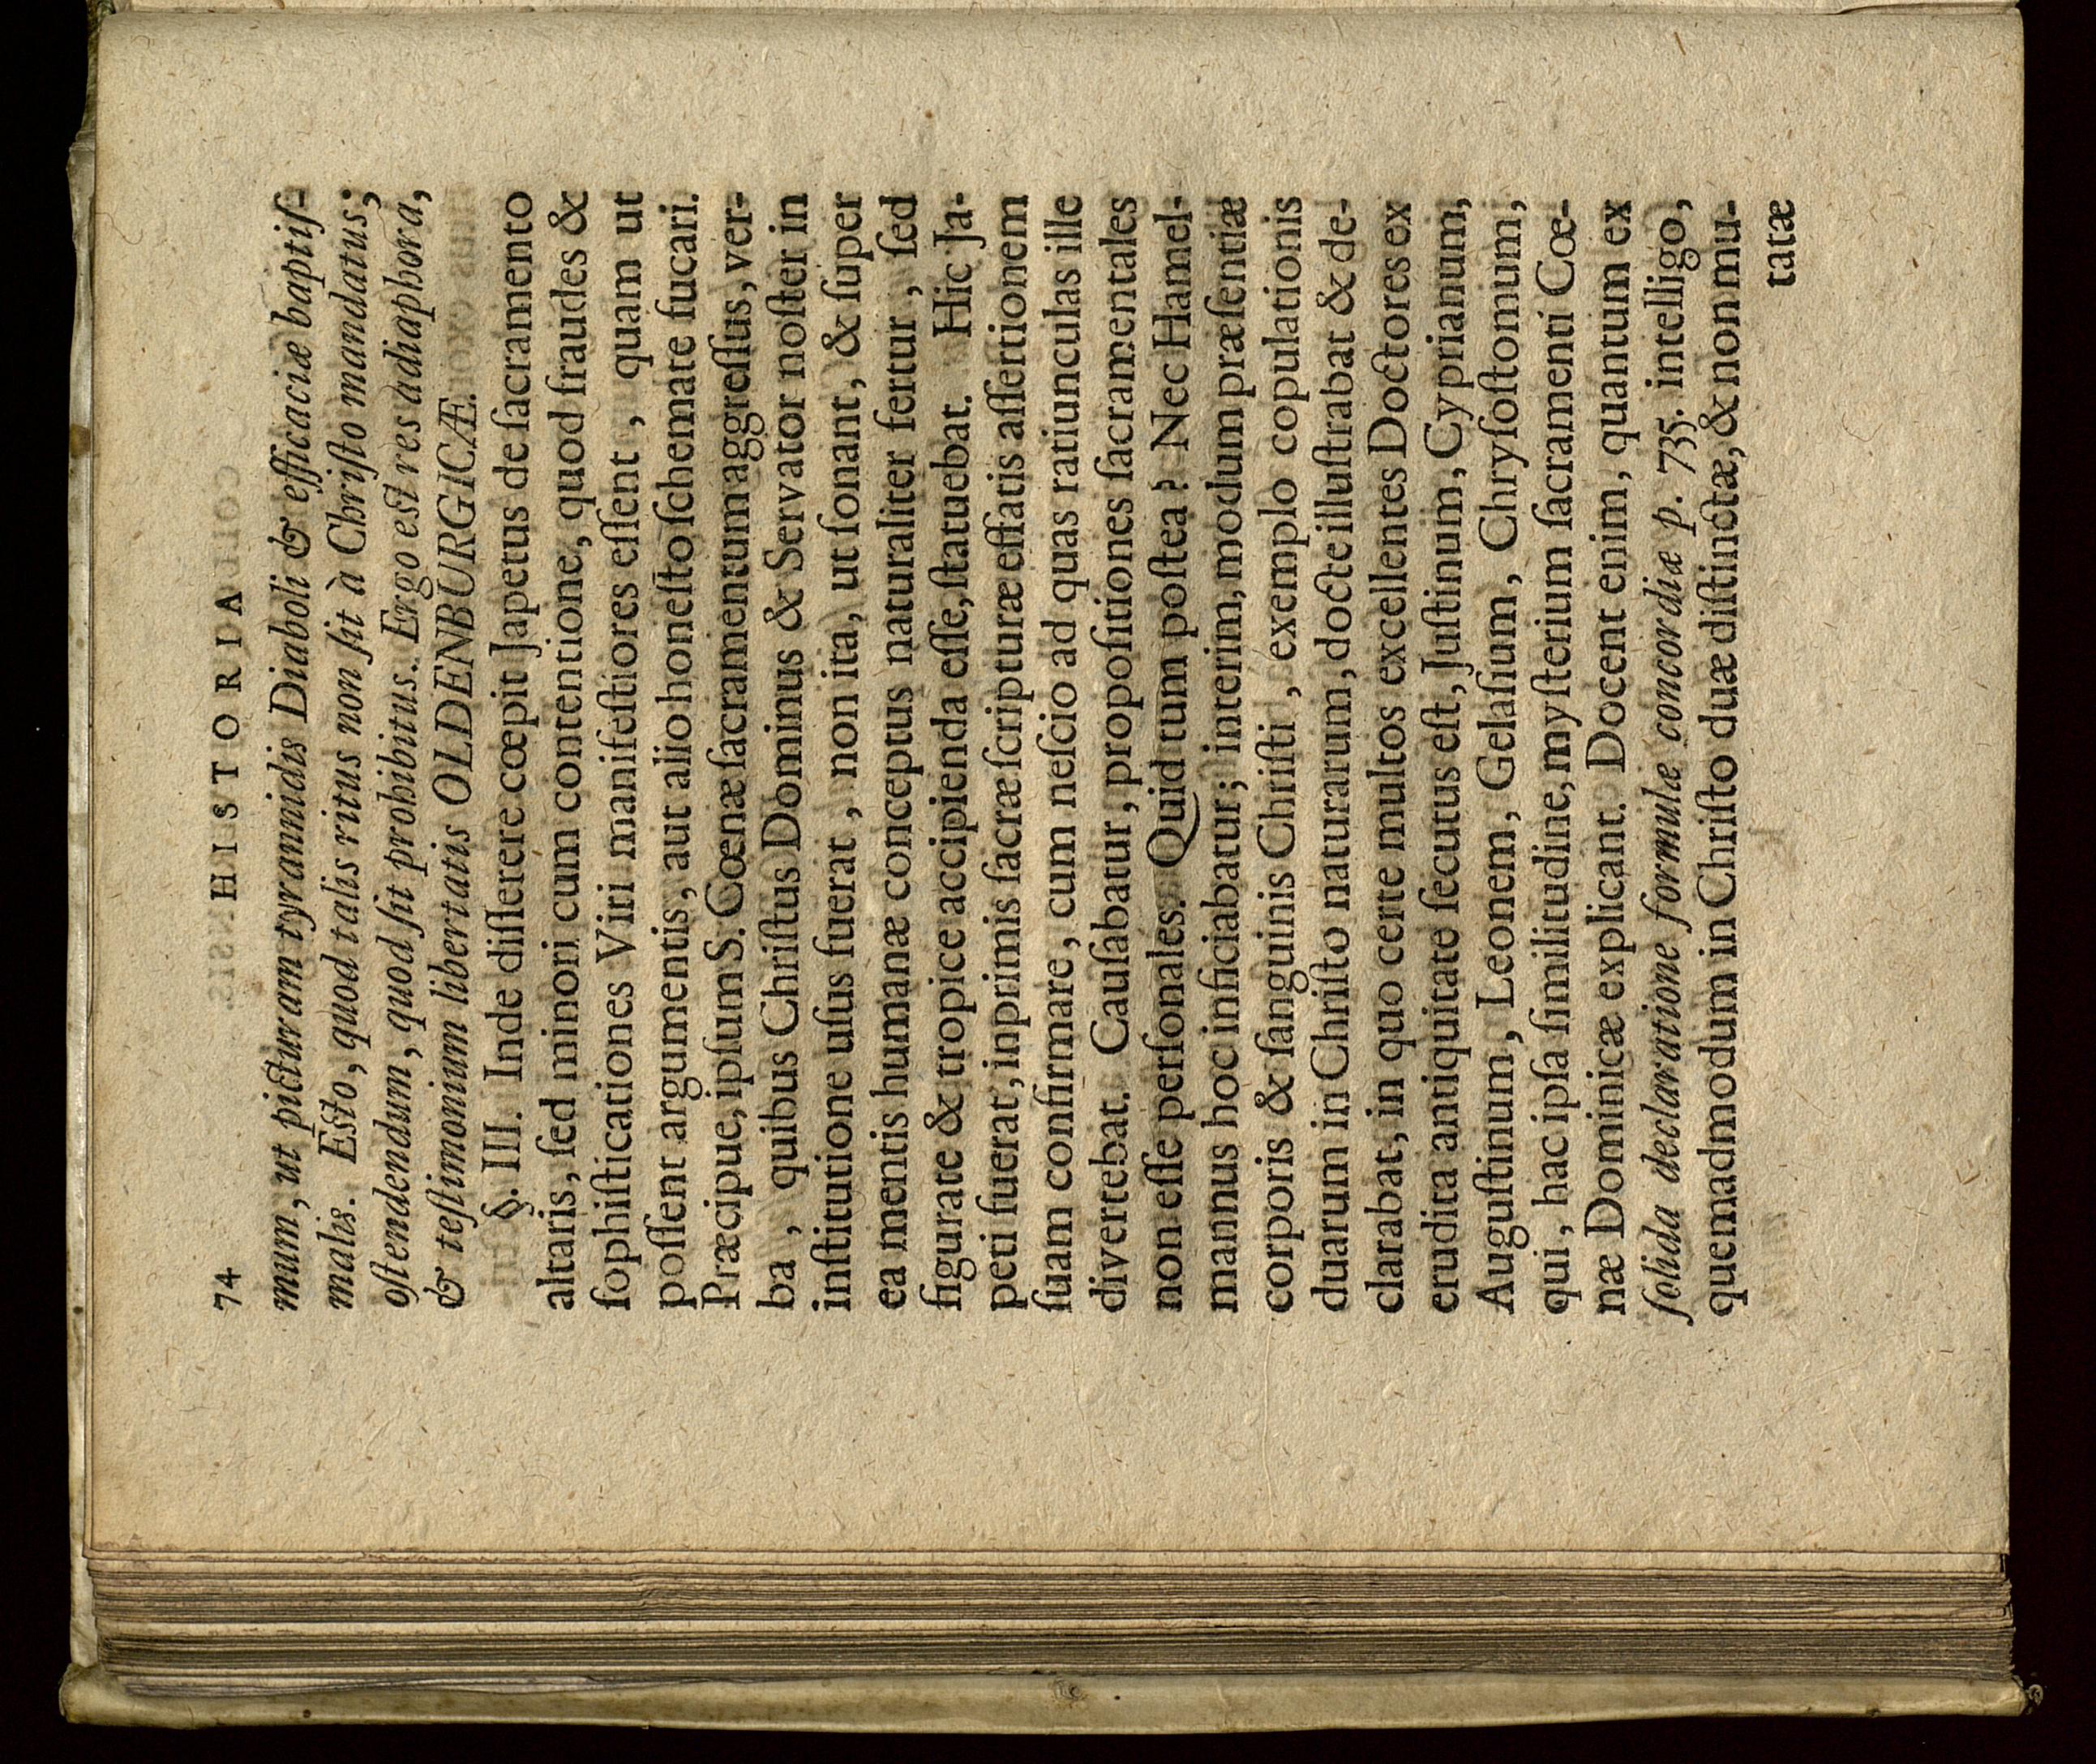 74 HISTORIA
mum, ut picturam tyrannidis Diaboli & efficaciæ baptiſ-
malis. Esto, quod talis ritus non ſit à Chriſto mandatus;
oſtendendum, quod ſit prohibitus. Ergo est res adiaphora,
& teſtimonium libertatis OLDENBURGICÆ.
§. III. Inde diſſerere cœpit Japetus de ſacramento
altaris, ſed minori cum contentione, quod fraudes &
ſophiſticationes Viri manifeſtiores eſſent, quam ut
poſſent argumentis, aut alio honeſto ſchemate fucari.
Præcipue, ipſum S. Cœnæ ſacramentum aggreſſus, ver-
ba, quibus Chriſtus Dominus & Servator noſter in
inſtitutione uſus fuerat, non ita, ut ſonant, & ſuper
ea mentis humanæ conceptus naturaliter fertur, ſed
figurate & tropice accipienda eſſe, ſtatuebat. Hic Ja-
peti fuerat, inprimis ſacræ ſcripturæ effatis aſſertionem
ſuam confirmare, cum neſcio ad quas ratiunculas ille
divertebat. Cauſabatur, propoſitiones ſacramentales
non eſſe perſonales. Quid tum poſtea? Nec Hamel-
mannus hoc inficiabatur; interim, modum præſentiæ
corporis & ſanguinis Chriſti, exemplo copulationis
duarum in Chriſto naturarum, docte illuſtrabat & de-
clarabat, in quo certe multos excellentes Doctores ex
erudita antiquitate ſecutus eſt, Juſtinum, Cyprianum,
Auguſtinum, Leonem, Gelaſium, Chryſoſtomum,
qui, hac ipſa ſimilitudine, myſterium ſacramenti Cœ-
næ Dominicæ explicant. Docent enim, quantum ex
ſolida declaratione formulæ concordiæ p. 735. intelligo,
quemadmodum in Chriſto duæ diſtinctæ, & non mu-
tatæ